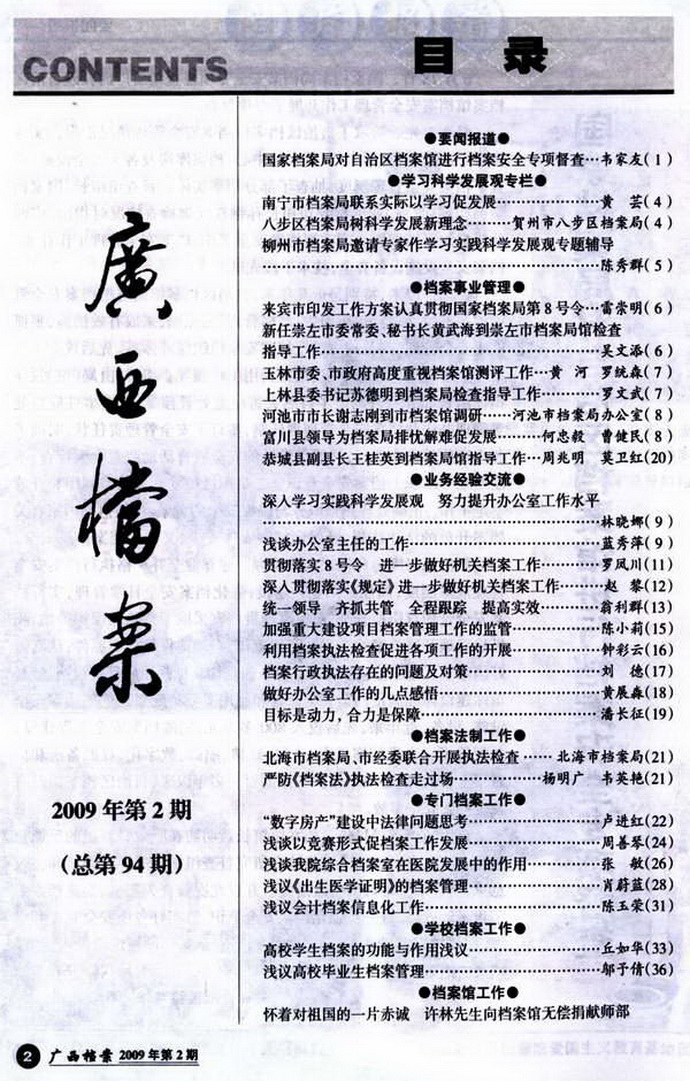 CONTENTS 目 录
廣西檔案
2009年第2期
(总第94期)
●要闻报道●
国家档案局对自治区档案馆进行档案安全专项督查…韦家友(1)
●学习科学发展观专栏●
南宁市档案局联系实际以学习促发展……………黄 芸(4)
八步区档案局树科学发展新理念……贺州市八步区档案局(4)
柳州市档案局邀请专家作学习实践科学发展观专题辅导
……………………………………………陈秀群(5)
●档案事业管理●
来宾市印发工作方案认真贯彻国家档案局第8号令…雷崇明(6)
新任崇左市委常委、秘书长黄武海到崇左市档案局馆检查
指导工作…………………………………吴文添(6)
玉林市委、市政府高度重视档案馆测评工作…黄 河 罗统森(7)
上林县委书记苏德明到档案局检查指导工作………罗文武(7)
河池市市长谢志刚到市档案馆调研……河池市档案局办公室(8)
富川县领导为档案局排忧解难促发展……何忠毅 曹健民(8)
恭城县副县长王桂英到档案局馆指导工作…周兆明 莫卫红(20)
●业务经验交流●
深入学习实践科学发展观 努力提升办公室工作水平
……………………………………………林晓娜(9)
浅谈办公室主任的工作………………………蓝秀萍(9)
贯彻落实8号令 进一步做好机关档案工作………罗凤川(11)
深人贯彻落实《规定》进一步做好机关档案工作……赵 黎(12)
统一领导 齐抓共管 全程跟踪 提高实效………翁利群(13)
加强重大建设项目档案管理工作的监管…………陈小莉(15)
利用档案执法检查促进各项工作的开展…………钟彩云(16)
档案行政执法存在的问题及对策………………刘 德(17)
做好办公室工作的几点感悟……………………黄展森(18)
目标是动力,合力是保障………………………潘长征(19)
●档案法制工作●
北海市档案局、市经委联合开展执法检查……北海市档案局(21)
严防《档案法》执法检查走过场…………杨明广 韦英艳(21)
●专门档案工作●
“数字房产”建设中法律问题思考………………卢进红(22)
浅谈以竞赛形式促档案工作发展………………周善琴(24)
浅谈我院综合档案室在医院发展中的作用………张 敏(26)
浅议《出生医学证明》的档案管理………………肖蔚蓝(28)
浅议会计档案信息化工作……………………陈玉荣(31)
●学校档案工作●
高校学生档案的功能与作用浅议………………丘如华(33)
浅议高校毕业生档案管理……………………邬予倩(36)
●档案馆工作●
怀着对祖国的一片赤诚 许林先生向档案馆无偿捐献师部
2 广西档案 2009年第2期